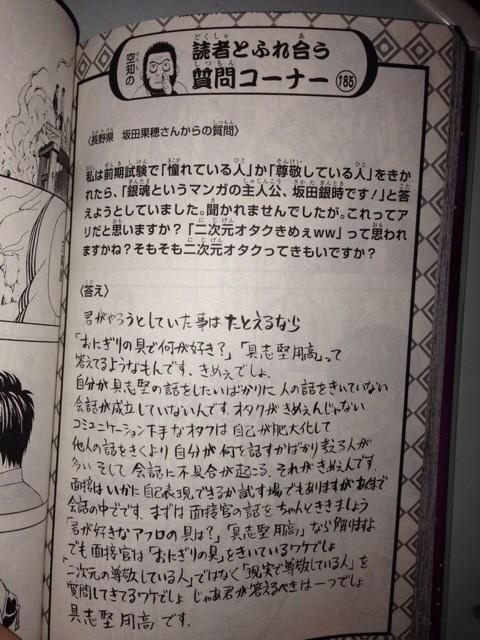 空知の
読者とふれ合う
質問コーナー 185
〈長野県 坂田果穂さんからの質問〉
私は前期試験で「憧れている人」か「尊敬している人」をきか
れたら、「銀魂というマンガの主人公、坂田銀時です!」と答
えようとしていました。聞かれませんでしたが。これってア
リだと思いますか?「二次元オタクきめぇww」って思われ
ますかね?そもそも二次元オタクってきもいですか?
〈答え〉
君がやろうとしていた事は たとえるなら
「おにぎりの具で何が好き?」「具志堅用高」って
答えてるようなもんです。きめぇでしょ。
自分が具志堅の話をしたいばかりに 人の話をきいていない
会話が成立していないんです。オタクがきめぇんじゃない
コミュニケーション下手なオタクは 自己が肥大化して
他人の話をきくより 自分が何を話すかばかり考える人が
多い そして 会話に不具合が起こる、それがきめぇんです。
面接はいかに自己表現できるか試す場でもありますが あくまで
会話の中でです。まずは面接官の話をちゃんとききましょう
「君が好きなアフロの具は?」「具志堅用高」なら解りますよ
でも面接官は「おにぎりの具」をきいているワケでしょ
「二次元の尊敬している人」ではなく「現実で尊敬している人」を
質問してきてるワケでしょ じゃあ君が答えるべきは一つでしょ
具志堅用高です。